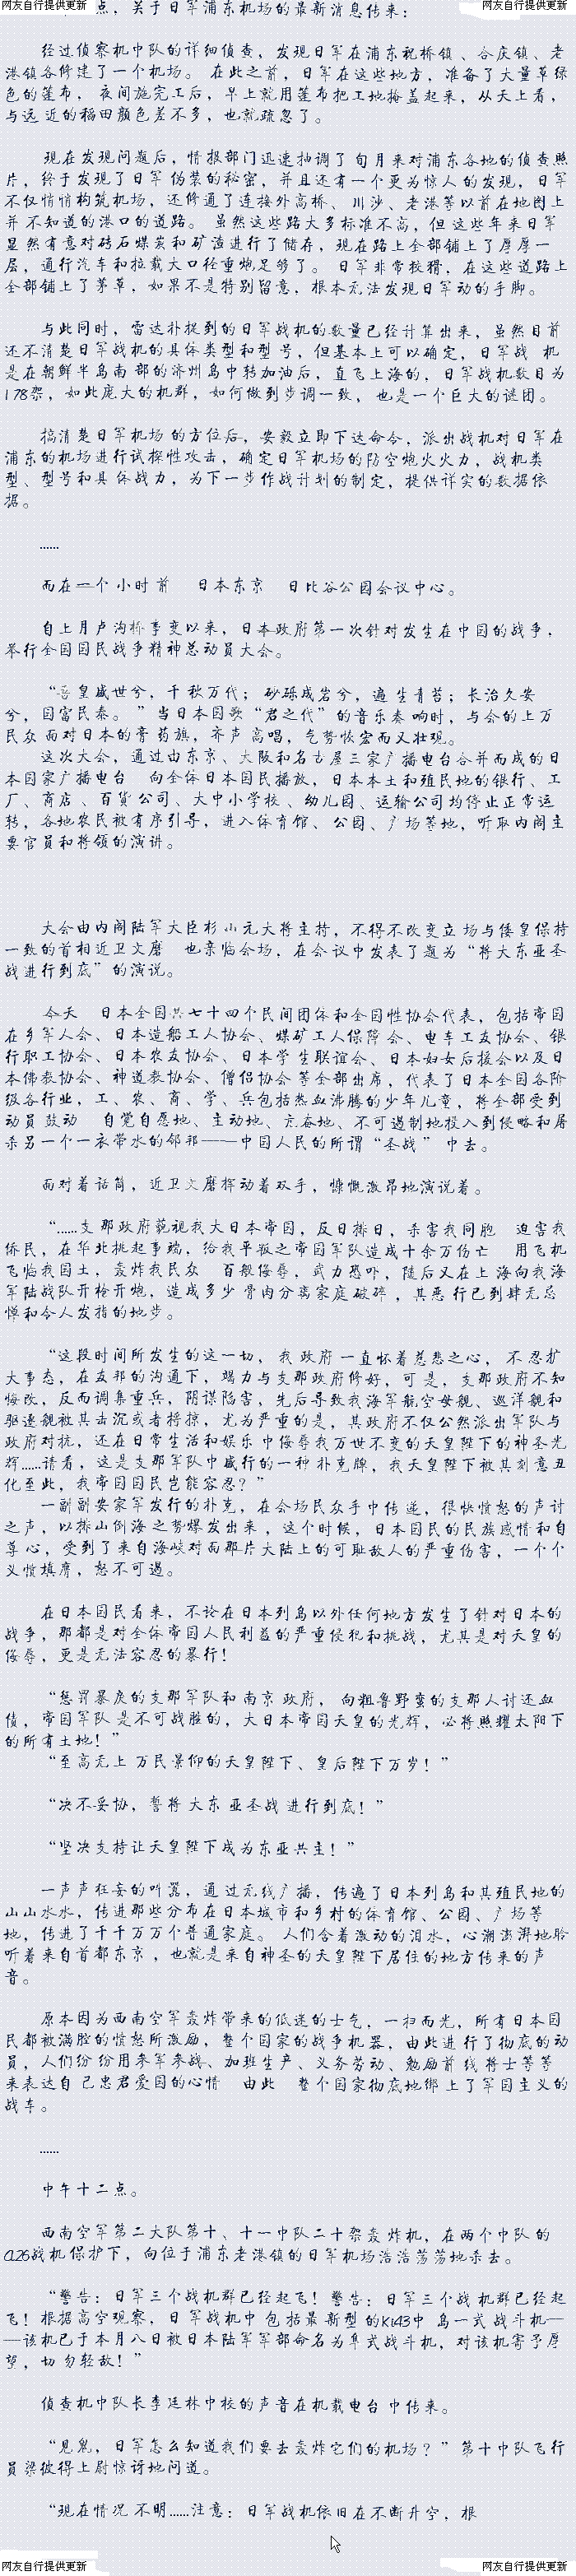 网友自行提供更新 网友自行提供更新
点，关于日军浦东机场的最新消息传来：
经过侦察机中队的详细侦查，发现日军在浦东祝桥镇、合庆镇、老
港镇各修建了一个机场。在此之前，日军在这些地方，准备了大量草绿
色的篷布，夜间施完工后，早上就用篷布把工地掩盖起来，从天上看，
与远近的稻田颜色差不多，也就疏忽了。
现在发现问题后，情报部门迅速抽调了旬月来对浦东各地的侦查照
片，终于发现了日军伪装的秘密，并且还有一个更为惊人的发现，日军
不仅悄悄构筑机场，还修通了连接外高桥、川沙、老港等以前在地图上
并不知道的港口的道路。虽然这些路大多标准不高，但这些年来日军
显然有意对砖石煤炭和矿渣进行了储存，现在路上全部铺上了厚厚一
层，通行汽车和拉载大口径重炮足够了。日军非常狡猾，在这些道路上
全部铺上了茅草，如果不是特别留意，根本无法发现日军动的手脚。
与此同时，雷达补捉到的日军战机的数量已经计算出来，虽然目前
还不清楚日军战机的具体类型和型号，但基本上可以确定，日军战 机
是在朝鲜半岛南部的济州岛中转加油后，直飞上海的，日军战机数目为
178架，如此庞大的机群，如何做到步调一致，也是一个巨大的谜团。
搞清楚日军机场的方位后，安毅立即下达命令，派出战机对日军在
浦东的机场进行试探性攻击，确定日军机场的防空炮火火力，战机类
型、型号和具体战力，为下一步作战计划的制定，提供详实的数据依
据。
……
而在一个小时前 日本东京 日比谷公园会议中心。
自上月卢沟桥事变以来，日本政府第一次针对发生在中国的战争，
举行全国国民战争精神总动员大会。
“吾皇盛世兮，千秋万代；砂砾成岩兮，遍生青苔；长治久安
兮，国富民泰。”当日本国歌“君之代”的音乐奏响时，与会的上万
民众面对日本的膏药旗，齐声高唱，气势恢宏而又壮观。
这次大会，通过由东京、大阪和名古屋三家广播电台合并而成的日
本国家广播电台 向全体日本国民播放，日本本土和殖民地的银行、工
厂、商店、百货公司、大中小学校、幼儿园、运输公司均停止正常运
转，各地农民被有序引导，进入体育馆、公园、广场等地，听取内阁主
要官员和将领的演讲。
大会由内阁陆军大臣杉山元大将主持，不得不改变立场与倭皇保持
一致的首相近卫文磨 也亲临会场，在会议中发表了题为“将大东亚圣
战进行到底”的演说。
今天 日本全国共七十四个民间团体和全国性协会代表，包括帝国
在乡军人会、日本造船工人协会、煤矿工人保障会、电车工友协会、银
行职工协会、日本农友协会、日本学生联谊会、日本妇女后援会以及日
本佛教协会、神道教协会、僧侣协会等全部出席，代表了日本全国各阶
级各行业，工、农、商、学、兵包括热血沸腾的少年儿童，将全部受到
动员鼓动 自觉自愿地、主动地、亢奋地、不可遏制地投入到侵略和屠
杀另一个一衣带水的邻邦——中国人民的所谓“圣战”中去。
面对着话筒，近卫文磨挥动着双手，慷慨激昂地演说着。
“……支那政府藐视我大日本帝国，反日排日，杀害我同胞 迫害我
侨民，在华北挑起事端，给我平叛之帝国军队造成十余万伤亡 用飞机
飞临我国土，轰炸我民众 百般侮辱，武力恐吓，随后又在上海向我海
军陆战队开枪开炮，造成多少骨肉分离家庭破碎，其恶行已到肆无忌
惮和令人发指的地步。
“这段时间所发生的这一切，我政府一直怀着慈悲之心，不忍扩
大事态，在友邦的沟通下，竭力与支那政府修好，可是，支那政府不知
悔改，反而调集重兵，阴谋陷害，先后导致我海军航空母舰、巡洋舰和
驱逐舰被其击沉或者掳掠，尤为严重的是，其政府不仅公然派出军队与
政府对抗，还在日常生活和娱乐中侮辱我万世不变的天皇陛下的神圣光
辉……请看，这是支那军队中盛行的一种扑克牌，我天皇陛下被其刻意丑
化至此，我帝国国民岂能容忍？”
一副副安家军发行的扑克，在会场民众手中传递，很快愤怒的声讨
之声，以排山倒海之势爆发出来，这个时候，日本国民的民族感情和自
尊心，受到了来自海峡对面那片大陆上的可耻敌人的严重伤害，一个个
义愤填膺，怒不可遏。
在日本国民看来，不论在日本列岛以外任何地方发生了针对日本的
战争，那都是对全体帝国人民利益的严重侵犯和挑战，尤其是对天皇的
侮辱，更是无法容忍的暴行！
“惩罚暴戾的支那军队和南京政府，向粗鲁野蛮的支那人讨还血
债，帝国军队是不可战胜的，大日本帝国天皇的光辉，必将照耀太阳下
的所有土地！”
“至高无上万民景仰的天皇陛下、皇后陛下万岁！”
“决不妥协，誓将大东亚圣战进行到底！”
“坚决支持让天皇陛下成为东亚共主！”
一声声狂妄的叫嚣，通过无线广播，传遍了日本列岛和其殖民地的
山山水水，传进那些分布在日本城市和乡村的体育馆、公园、广场等
地，传进了千千万万个普通家庭。人们含着激动的泪水，心潮澎湃地聆
听着来自首都东京，也就是来自神圣的天皇陛下居住的地方传来的声
音。
原本因为西南空军轰炸带来的低迷的士气，一扫而光，所有日本国
民都被满腔的愤怒所激励，整个国家的战争机器，由此进行了彻底的动
员，人们纷纷用参军参战、加班生产、义务劳动、勉励前线将士等等
来表达自己忠君爱国的心情 由此 整个国家彻底地绑上了军国主义的
战车。
……
中午十二点。
西南空军第二大队第十、十一中队二十架轰炸机，在两个中队的
Q26战机保护下，向位于浦东老港镇的日军机场浩浩荡荡地杀去。
“警告：日军三个战机群已经起飞！警告：日军三个战机群已经起
飞！根据高空观察，日军战机中包括最新型的Ki43中岛一式战斗机—
—该机已于本月八日被日本陆军军部命名为隼式战斗机，对该机寄予厚
望，切勿轻敌！”
侦查机中队长李廷林中校的声音在机载电台中传来。
“见鬼，日军怎么知道我们要去轰炸它们的机场？”第十中队飞行
员梁彼得上尉惊讶地问道。
“现在情况不明……注意：日军战机依旧在不断升空，根
网友自行提供更新 网友自行提供更新